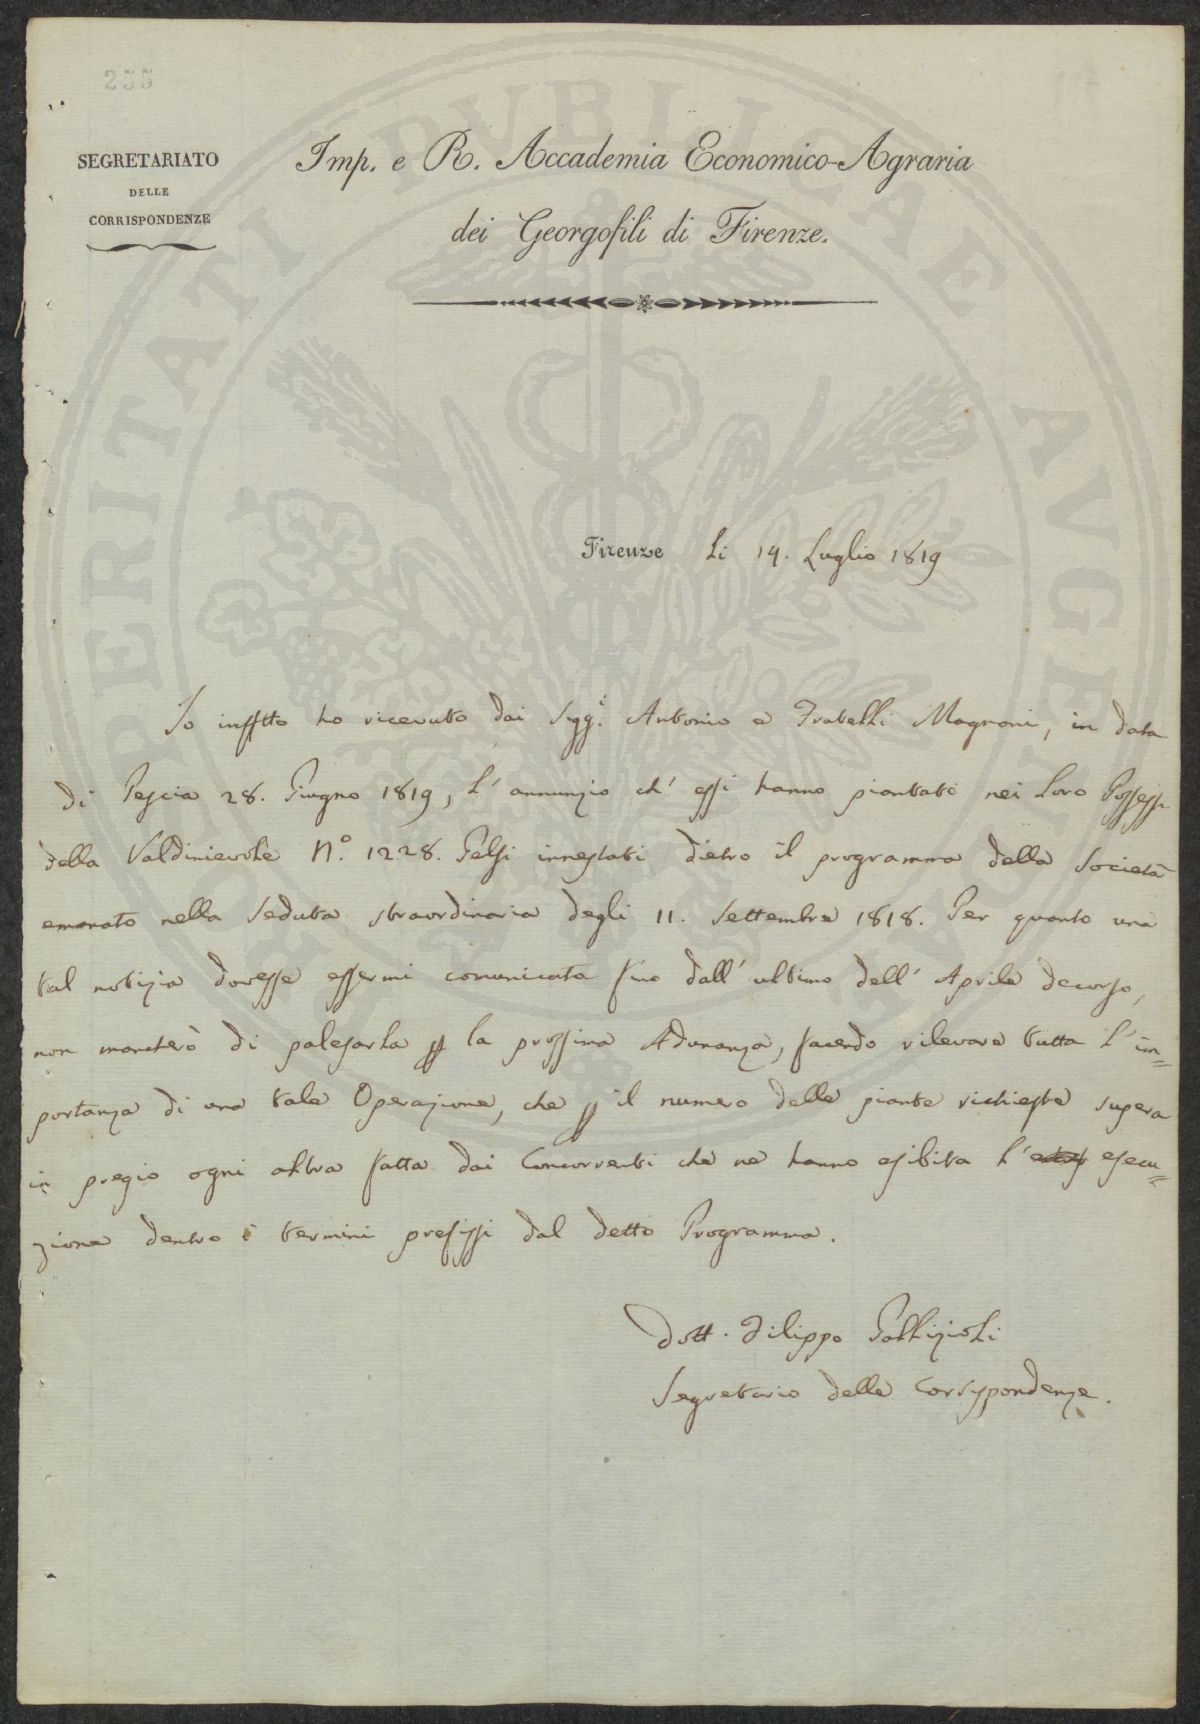 255
SEGRETARIATO
DELLE
CORRISPONDENZE
Imp. e R. Accademia Economico-Agraria
dei Georgofili di Firenze.
Firenze li 14. Luglio 1819
Io insftto ho ricevuto dai Sigg.i Antonio e Fratelli Magnani, in data
di Pescia 28. Giugno 1819, l'annunzio ch'essi hanno piantato nei loro Possessi
della Valdinievole N.o 1228. Gelsi innestati dietro il programma della Società
emanato nella Seduta straordinaria degli 11. Settembre 1818. Per quanto una
tal notizia dovesse essermi comunicata fino dall'ultimo dell'Aprile decorso,
non mancherò di palesarla p la prossima Adunanza, facendo rilevare tutta l'im=
portanza di una tale Operazione, che p il numero delle piante richieste supera
in pregio ogni altra fatta dai Concorrenti che ne hanno esibita l' esecu=
zione dentro i termini prefissi dal detto Programma.
Dott. Filippo Gallizioli
Segretario delle Corrispondenze.
PROSPERITATI PUBLICAE AVGENDAE